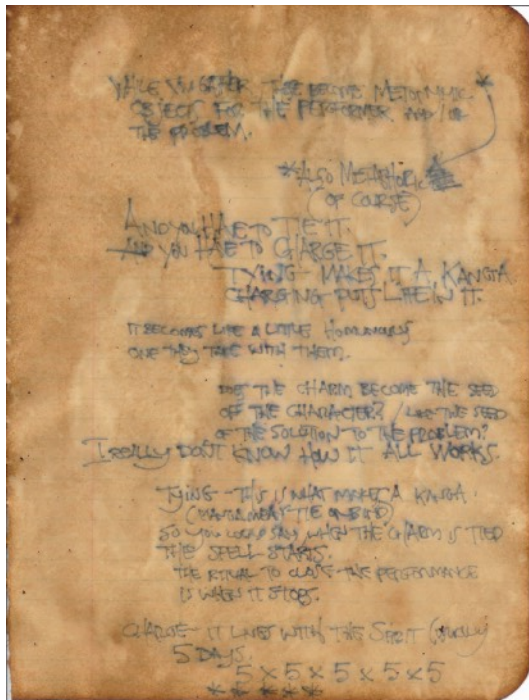 THESE BECOME METONYMIC *
OBJECTS FOR THE PERFORMER AND/OR
THE PROBLEM.
*ALSO METAPHORIC
(OF COURSE)
AND YOU HAVE TO TIE IT.
AND YOU HAVE TO CHARGE IT.
TYING MAKES IT A KANGA
CHARGING PUTS LIFE IN IT.
IT BECOMES LIKE A LITTLE HOMUNCULUS
ONE THEY TAKE WITH THEM.
DOES THE CHARM BECOME THE SEED
OF THE CHARACTER? / LIKE THE SEED
OF THE SOLUTION TO THE PROBLEM?
I REALLY DON'T KNOW HOW IT ALL WORKS.
TYING - THIS IS WHAT MAKES A KANGA.
(KANGA MEANS TIE OR BIND)
SO YOU COULD SAY WHEN THE CHARM IS TIED
THE SPELL STARTS.
THE RITUAL TO CLOSE THE PERFORMANCE
IS WHEN IT STOPS.
CHARGE - IT LIVES WITH THE SPIRIT (USUALLY
5 DAYS.
5 x 5 x 5 x 5 x 5
* * * * *